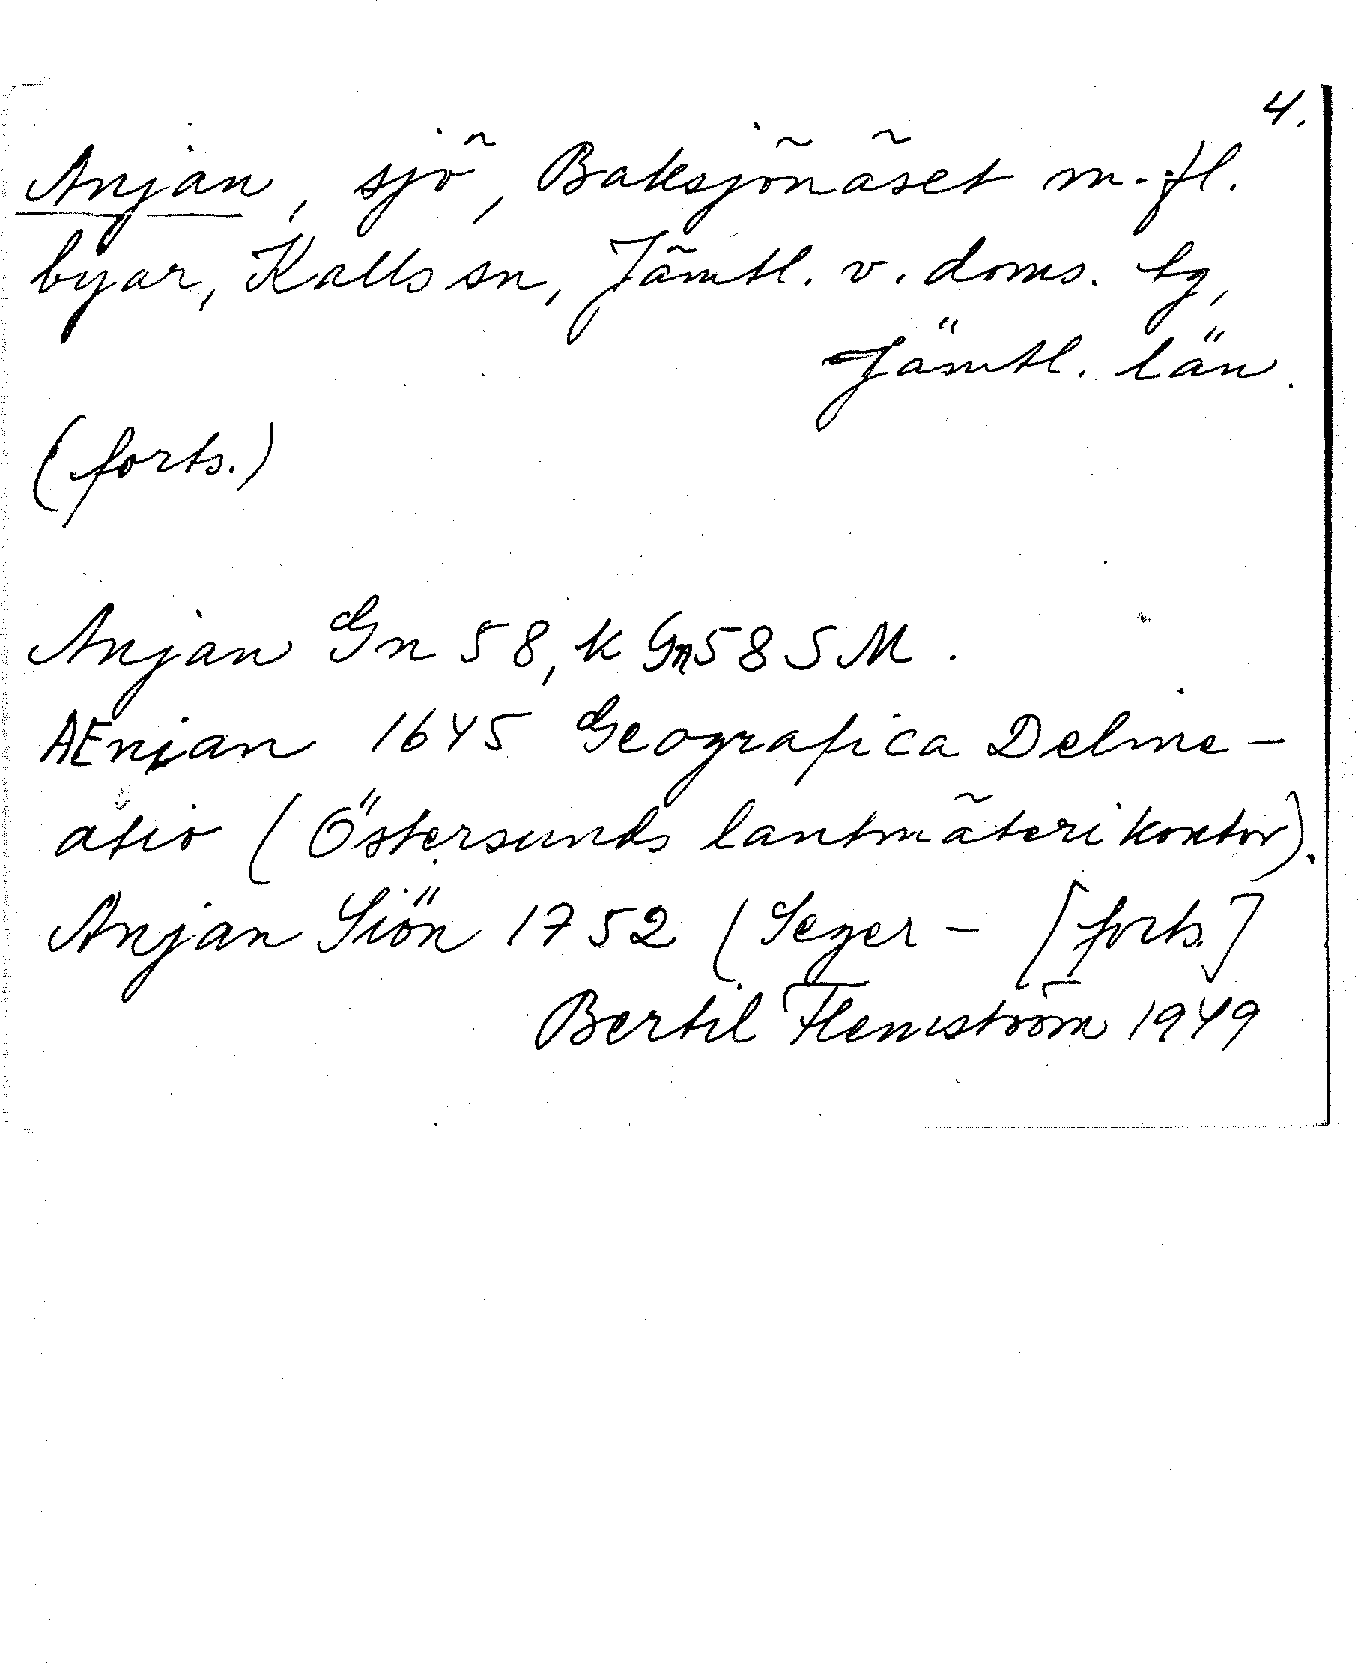 4.
Anjan, sjö, Baksjönäset m. fl.
byar, Kalls sn, Jämtl. v. doms. tg,
Jämtl. län.
(forts.)
Anjan Gn 58, k Gn58 SM.
AEnjan 1645 Geografica Deline-
atio (Östersunds lantmäterikontor).
Anjan Siön 1752 (Seger- [forts.]
Bertil Flemström 1949